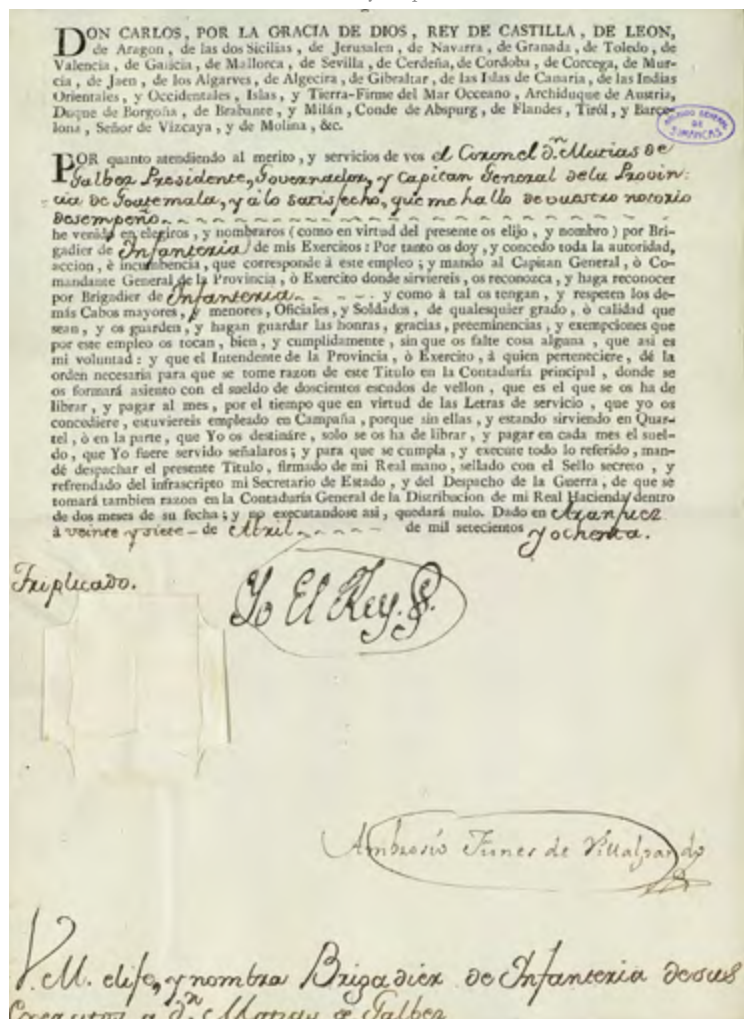 DON CARLOS, POR LA GRACIA DE DIOS, REY DE CASTILLA, DE LEON,
de Aragon, de las dos Sicilias, de Jerusalen, de Navarra, de Granada, de Toledo, de
Valencia, de Galicia, de Mallorca, de Sevilla, de Cerdeña, de Cordoba, de Corcega, de Mur-
cia, de Jaen, de los Algarves, de Algecira, de Gibraltar, de las Islas de Canaria, de las Indias
Orientales, y Occidentales, Islas, y Tierra-Firme del Mar Occeano, Archiduque de Austria,
Duque de Borgoña, de Brabante, y Milán, Conde de Abspurg, de Flandes, Tiról, y Barce-
lona, Señor de Vizcaya, y de Molina, &c.
ARCHIVO GENERAL
DE
SIMANCAS
POR quanto atendiendo al merito, y servicios de vos el Coronel dn. Matias de
Galbez Presidente, Governador, y Capitan General dela Provin-
cia de Goatemala, y á lo satisfecho, que me hallo de vuestro notorio
desempeño
he venido en elegiros, y nombraros (como en virtud del presente os elijo, y nombro) por Bri-
gadier de Infanteria de mis Exercitos: Por tanto os doy, y concedo toda la autoridad,
accion, è incumbencia, que corresponde à este empleo; y mando al Capitan General, ò Co-
mandante General de la Provincia, ò Exercito donde sirviereis, os reconozca, y haga reconocer
por Brigadier de Infanteria y como à tal os tengan, y respeten los de-
más Cabos mayores, y menores, Oficiales, y Soldados, de qualesquier grado, ò calidad que
sean, y os guarden, y hagan guardar las honras, gracias, preeminencias, y exempciones que
por este empleo os tocan, bien, y cumplidamente, sin que os falte cosa alguna, que asi es
mi voluntad: y que el Intendente de la Provincia, ò Exercito, à quien perteneciere, dé la
orden necesaria para que se tome razon de este Titulo en la Contaduría principal, donde se
os formará asiento con el sueldo de doscientos escudos de vellon, que es el que se os ha de
librar, y pagar al mes, por el tiempo que en virtud de las Letras de servicio, que yo os
concediere, estuviereis empleado en Campaña, porque sin ellas, y estando sirviendo en Quar-
tel, ò en la parte, que Yo os destináre, solo se os ha de librar, y pagar en cada mes el suel-
do, que Yo fuere servido señalaros; y para que se cumpla, y execute todo lo referido, man-
dé despachar el presente Titulo, firmado de mi Real mano, sellado con el Sello secreto, y
refrendado del infrascripto mi Secretario de Estado, y del Despacho de la Guerra, de que se
tomará tambien razon en la Contaduría General de la Distribucion de mi Real Hacienda dentro
de dos meses de su fecha; y no executandose asi, quedará nulo. Dado en Aranjuez
à veinte y siete de Abril de mil setecientos y ochenta.
Triplicado.
Yo El Rey.
Ambrosio Funes de Villalpando
V. M. elije, y nombra Brigadier de Infanteria de sus
Exercitos a dn. Matias de Galbez